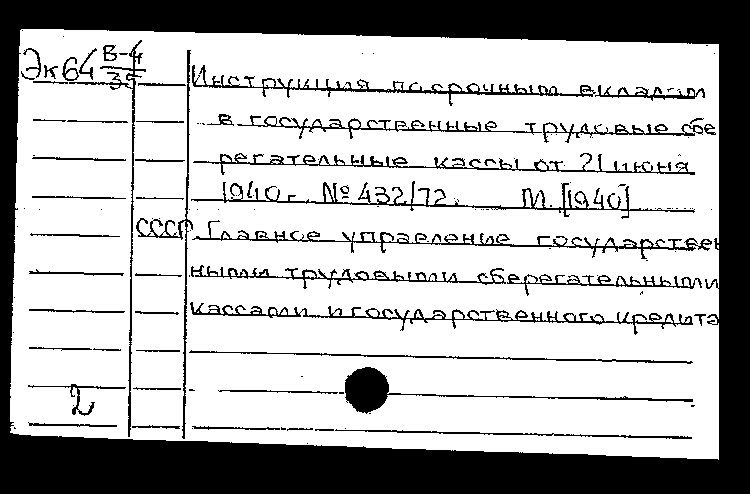 Эк64 В-4/35
Инструкция по срочным вкладам
в государственные трудовые сбе
регательные кассы от 21 июня
1940г. № 432/72. М. [1940]
СССР. Главное управление государствен
ными трудовыми сберегательными
кассами и государственного кредита
2